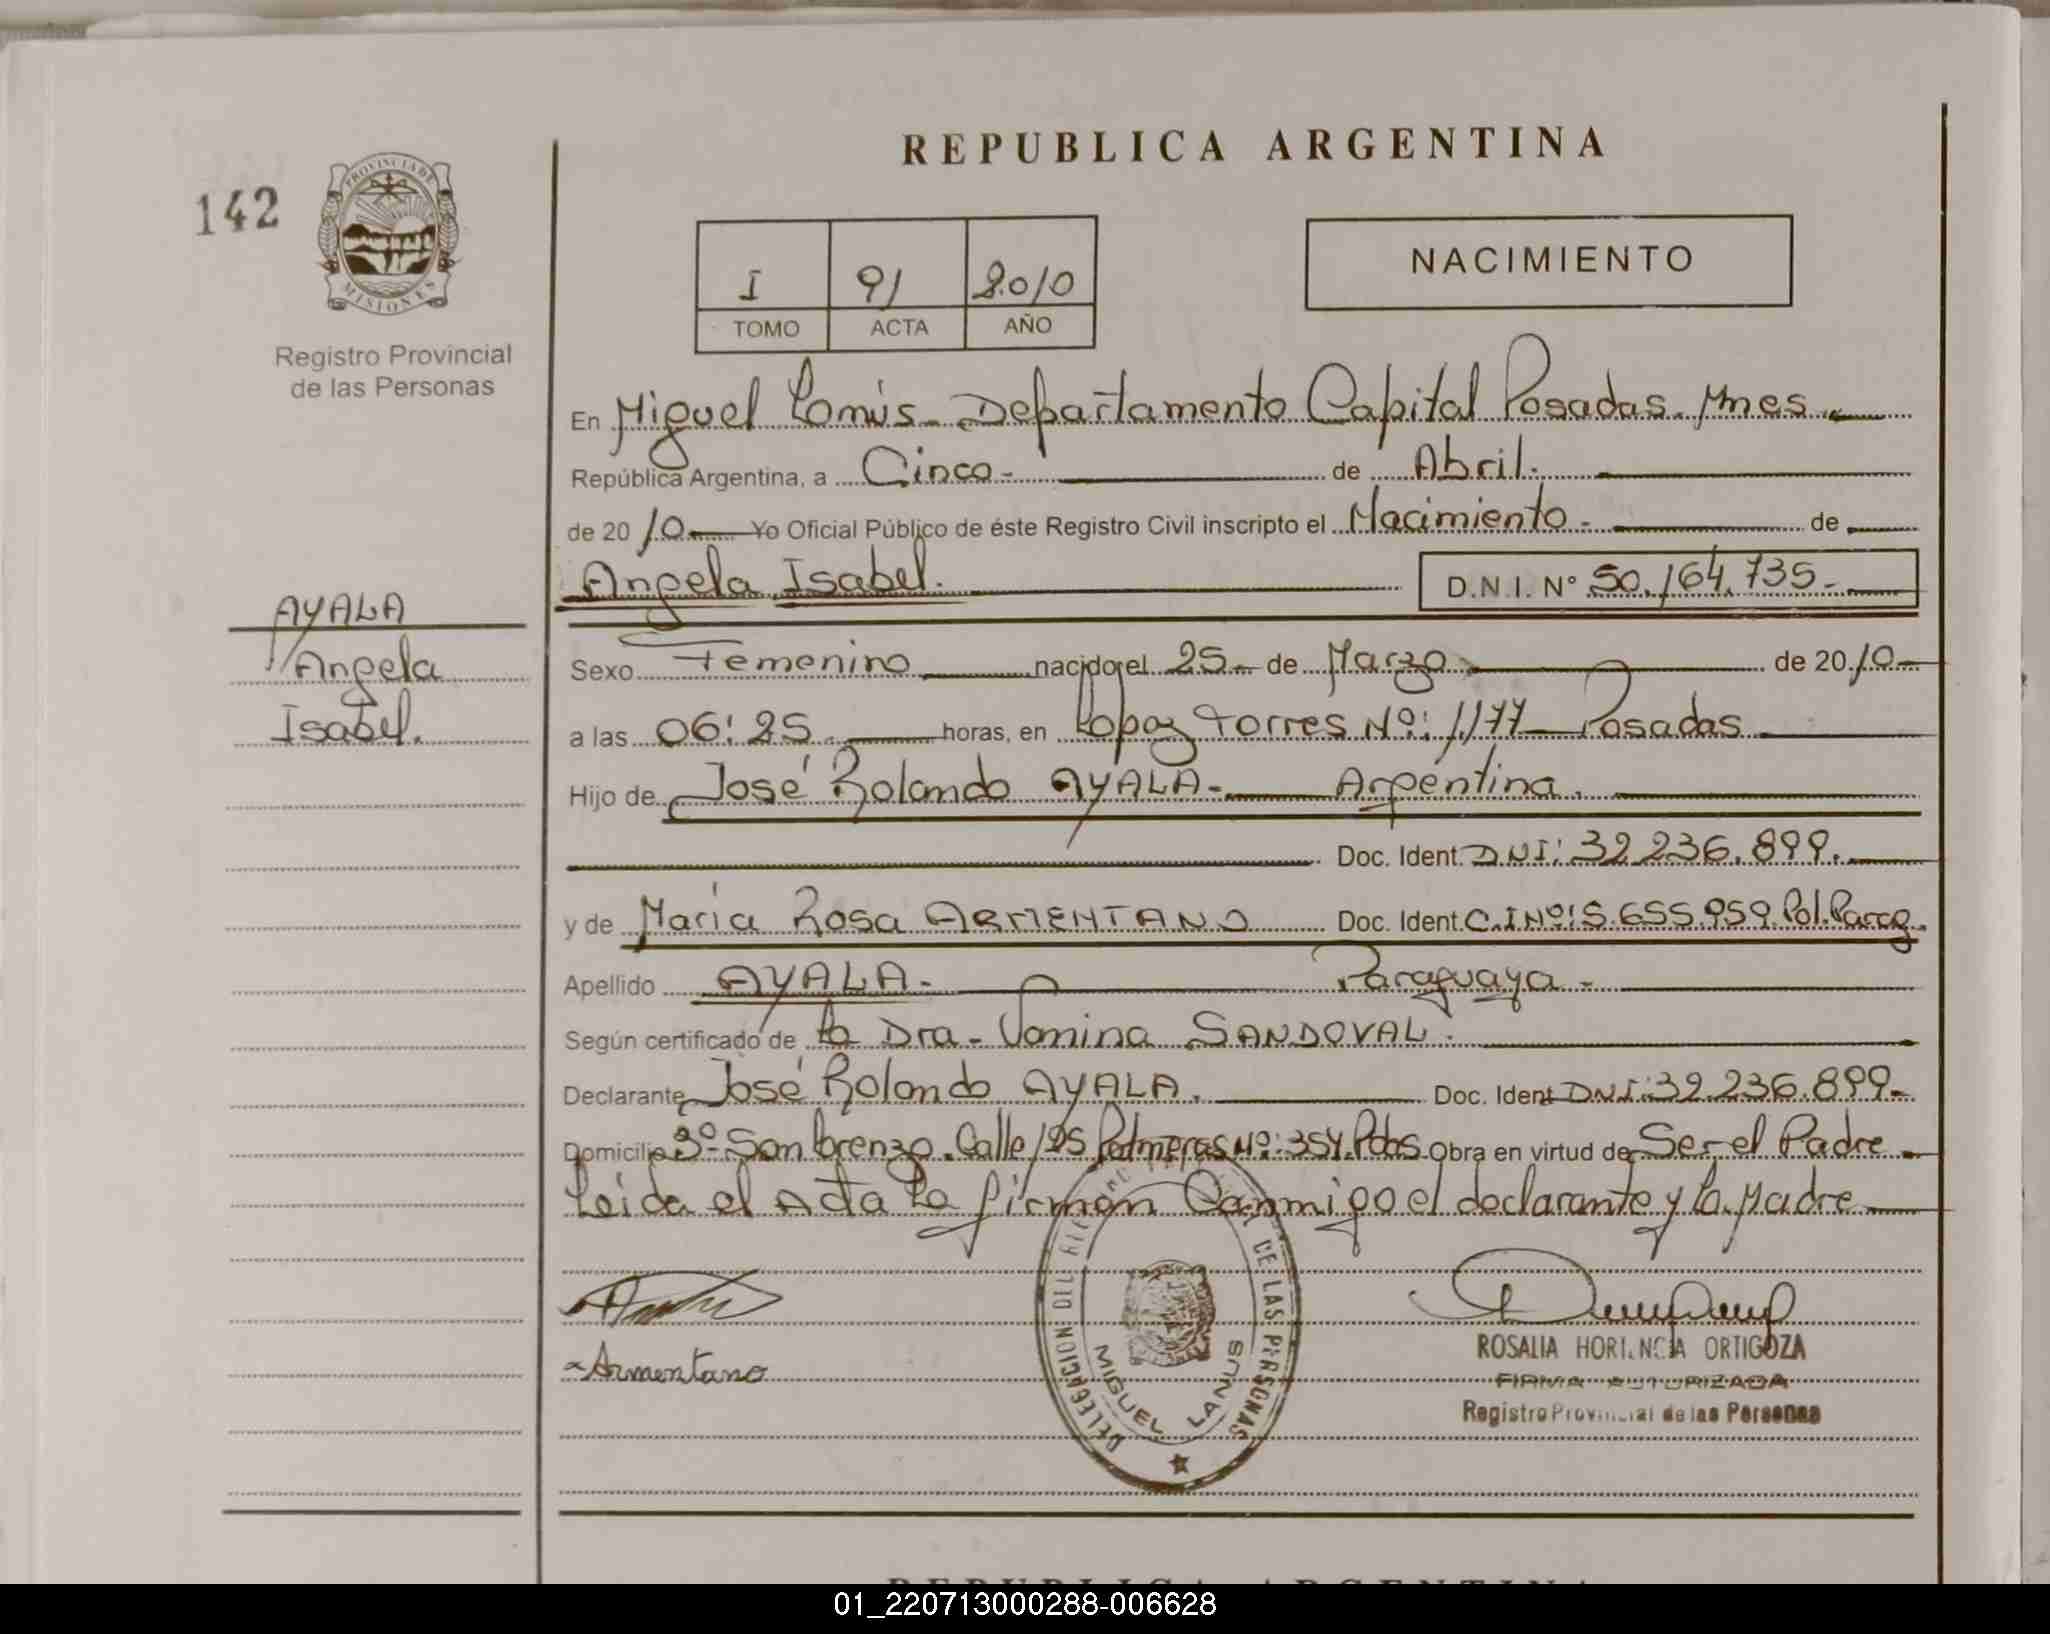 REPUBLICA ARGENTINA
142
PROVINCIA DE
MISIONES
Registro Provincial
de las Personas
I 91 2010
TOMO ACTA AÑO
NACIMIENTO
En Miguel Lanús - Departamento Capital Posadas. Mnes
República Argentina, a Cinco - de Abril.
de 2010 Yo Oficial Público de éste Registro Civil inscripto el Nacimiento - de
Angela Isabel. D.N.I. N° 50.164.735-
AYALA
Angela
Isabel.
Sexo Femenino nacido el 25 - de Marzo de 2010
a las 06:25 horas, en Lopez Torres Nº: 1177 - Posadas
Hijo de José Rolando AYALA - Argentina.
Doc. Ident. DNI: 32.236.899.
y de María Rosa ARMENTANO Doc. Ident. C.I Nº: 5.655.959. Pol. Parag.
Apellido AYALA - Paraguaya -
Según certificado de la Dra - Vanina SANDOVAL.
Declarante José Rolando AYALA. Doc. Ident DNI: 32.236.899-
Domicilio Sº San Lorenzo. Calle 125 Palmeras Nº: 354. Pdas Obra en virtud de Ser el Padre
Leida el Acta la firman Conmigo el declarante y la Madre
Armentano
DELEGACION DEL DE LAS PERSONAS
MIGUEL LANUS
ROSALIA HORTENCIA ORTIGOZA
FIRMA AUTORIZADA
Registro Provincial de las Personas
REPUBLICA ARGENTINA
01_220713000288-006628